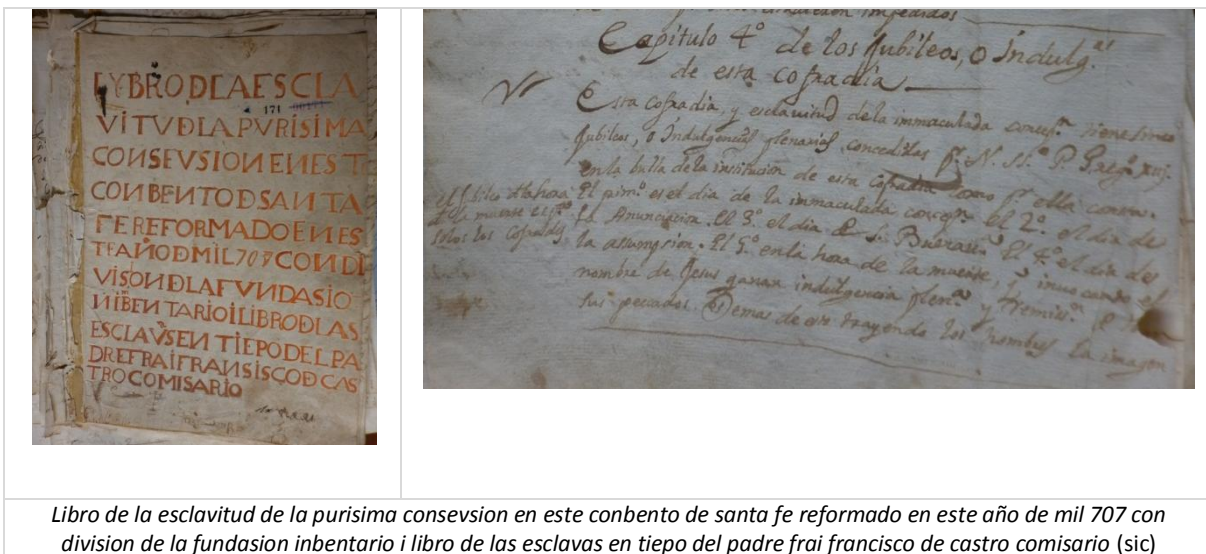 LYBRO DLA ESCLA
171
VITUDLAPVRISIMA
CONSEVSION EN EST
CONBENTO D SANTA
FE REFORMADO EN ES
TE AÑO D MIL 707 CON DI
VISON DLA FVNDASIO
NIBENTARIO I LIBRO DLAS
ESCLAVS EN TIEPO DEL PA
DRE FRAI FRANSISCO D CAS
TRO COMISARIO
impedidos
Capitulo 4º de los Jubileos, o Indulg.ᵃˢ
de esta cofradia
Esta Cofradia, y esclavitud de la immaculada concep.ⁿ tiene
Jubileos, o Indulgencias plenarias concedidas p.ʳ N. P. Greg.º
en la bulla de la institucion de esta Cofradia como p.ʳ ella consta.
El prim.º es el dia de la immaculada concep.ⁿ el 2º. el dia de
la Anunciacion. El 3º. el dia de S. Buenav.ᵃ El 4º. el dia de
la assumpsion. El 5º. en la hora de la muerte, invocando el
nombre de Jesus ganan indulgencia plen.ᵃ y remiss.ⁿ
sus peccados. Demas de esto trayendo los hombres la imagen
de la muerte es p.ª
solos los cofrades
Libro de la esclavitud de la purisima consevsion en este conbento de santa fe reformado en este año de mil 707 con
division de la fundasion inbentario i libro de las esclavas en tiepo del padre frai francisco de castro comisario (sic)